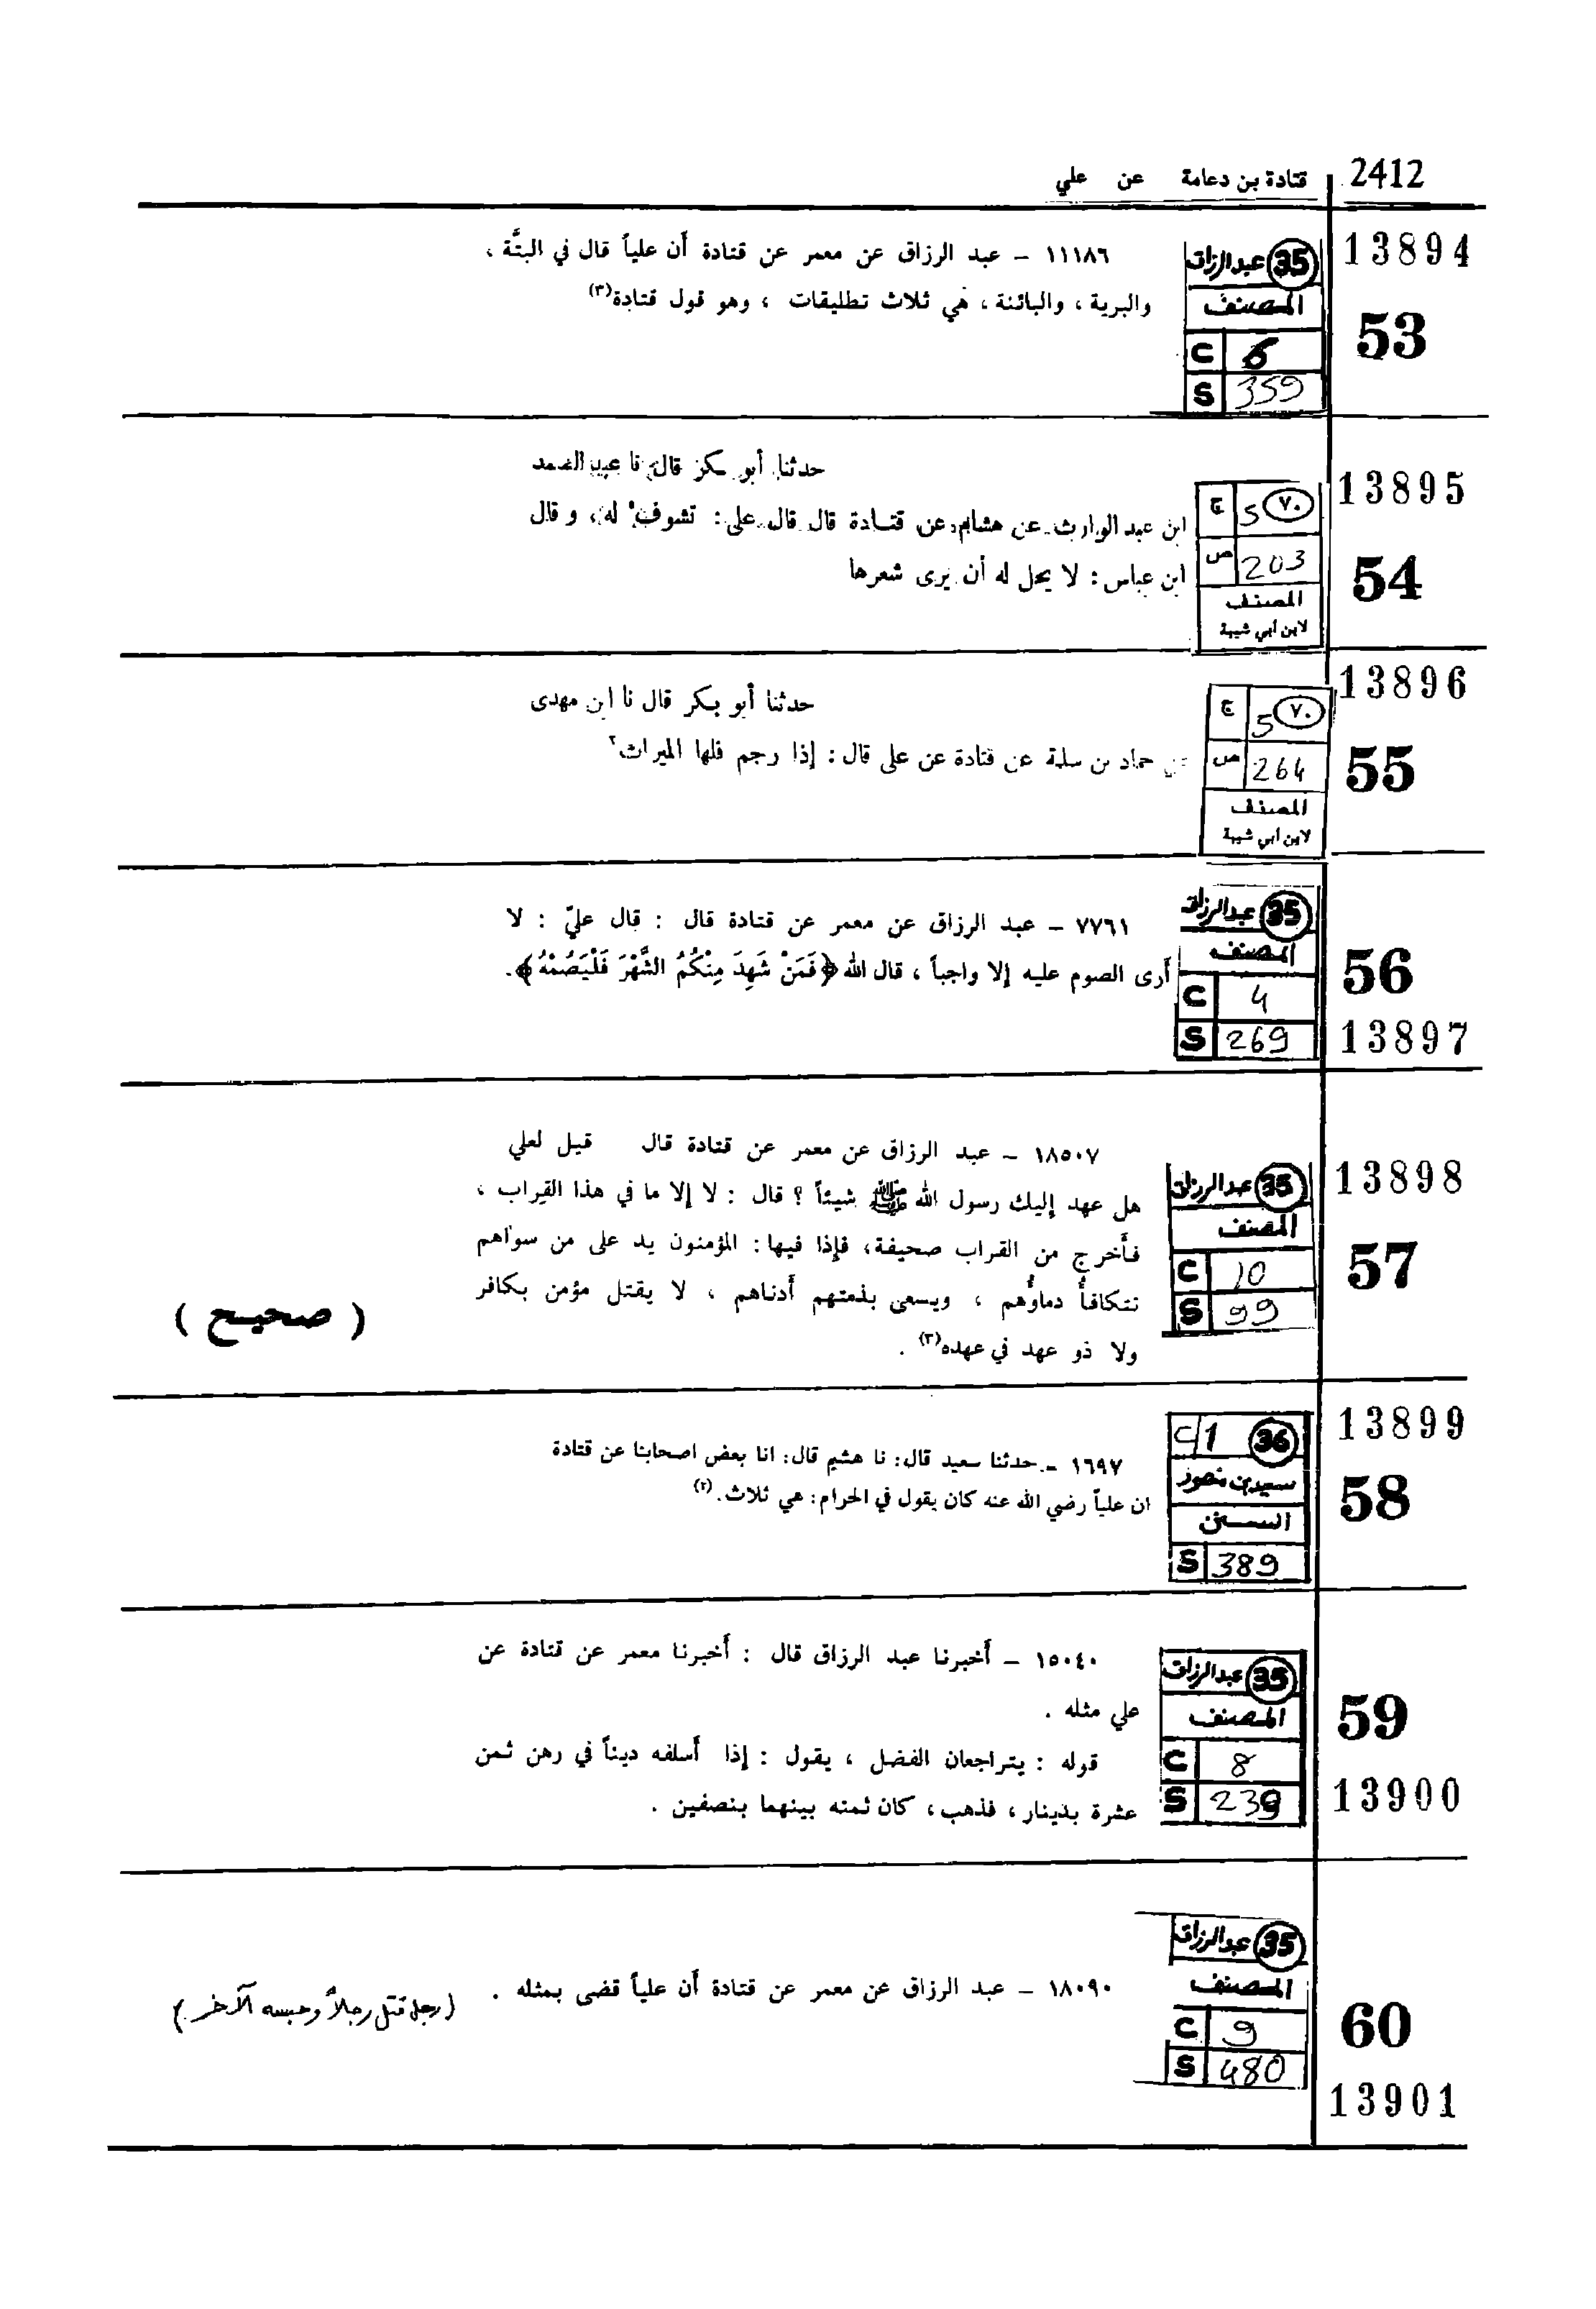 2412 قتادة بن دعامة عن علي
13894
53
35 عبدالرزاق
المصنف
C 6
S 359
١١١٨٦ – عبد الرزاق عن معمر عن قتادة أن علياً قال في البتَّة ،
والبرية ، والبائنة ، هي ثلاث تطليقات ، وهو قول قتادة(٣)
13895
54
ج 5 ٧٠
ص 203
المصنف
لابن أبي شيبة
حدثنا أبو بكر قال نا عبد الصمد
ابن عبد الوارث عن هشام عن قتادة قال قال على : تشوف له ، و قال
ابن عباس : لا يحل له أن يرى شعرها
13896
55
ج 5 ٧٠
ص 264
المصنف
لابن أبي شيبة
حدثنا أبو بكر قال نا ابن مهدى
عن حماد بن سلمة عن قتادة عن على قال : إذا رجم فلها الميراث٢
56
13897
35 عبدالرزاق
المصنف
C 4
S 269
٧٧٦١ – عبد الرزاق عن معمر عن قتادة قال : قال عليّ : لا
أرى الصوم عليه إلا واجباً ، قال الله ﴿فَمَنْ شَهِدَ مِنْكُمُ الشَّهْرَ فَلْيَصُمْهُ﴾.
13898
57
35 عبدالرزاق
المصنف
C 10
S 99
١٨٥٠٧ – عبد الرزاق عن معمر عن قتادة قال قيل لعلي
هل عهد إليك رسول الله ﷺ شيئاً ؟ قال : لا إلا ما في هذا القِراب ،
فأخرج من القراب صحيفة، فإذا فيها: المؤمنون يد على من سواهم
تتكافأُ دماؤُهم ، ويسعى بذمتهم أدناهم ، لا يقتل مؤمن بكافر
ولا ذو عهد في عهده(٣) .
( صحيح )
13899
58
C 1 36
سعيد بن منصور
السنن
S 389
١٦٩٧ – حدثنا سعيد قال: نا هشيم قال: انا بعض اصحابنا عن قتادة
ان علياً رضي الله عنه كان يقول في الحرام: هي ثلاث.(٢)
59
13900
35 عبدالرزاق
المصنف
C 8
S 239
١٥٠٤٠ – أخبرنا عبد الرزاق قال : أخبرنا معمر عن قتادة عن
علي مثله .
قوله : يتراجعان الفضل ، يقول : إذا أسلفه ديناً في رهن ثمن
عشرة بدينار ، فذهب ، كان ثمنه بينهما بنصفين .
60
13901
35 عبدالرزاق
المصنف
C 9
S 480
١٨٠٩٠ – عبد الرزاق عن معمر عن قتادة أن علياً قضى بمثله .
( رجل قتل رجلاً وحبسه الآخر )